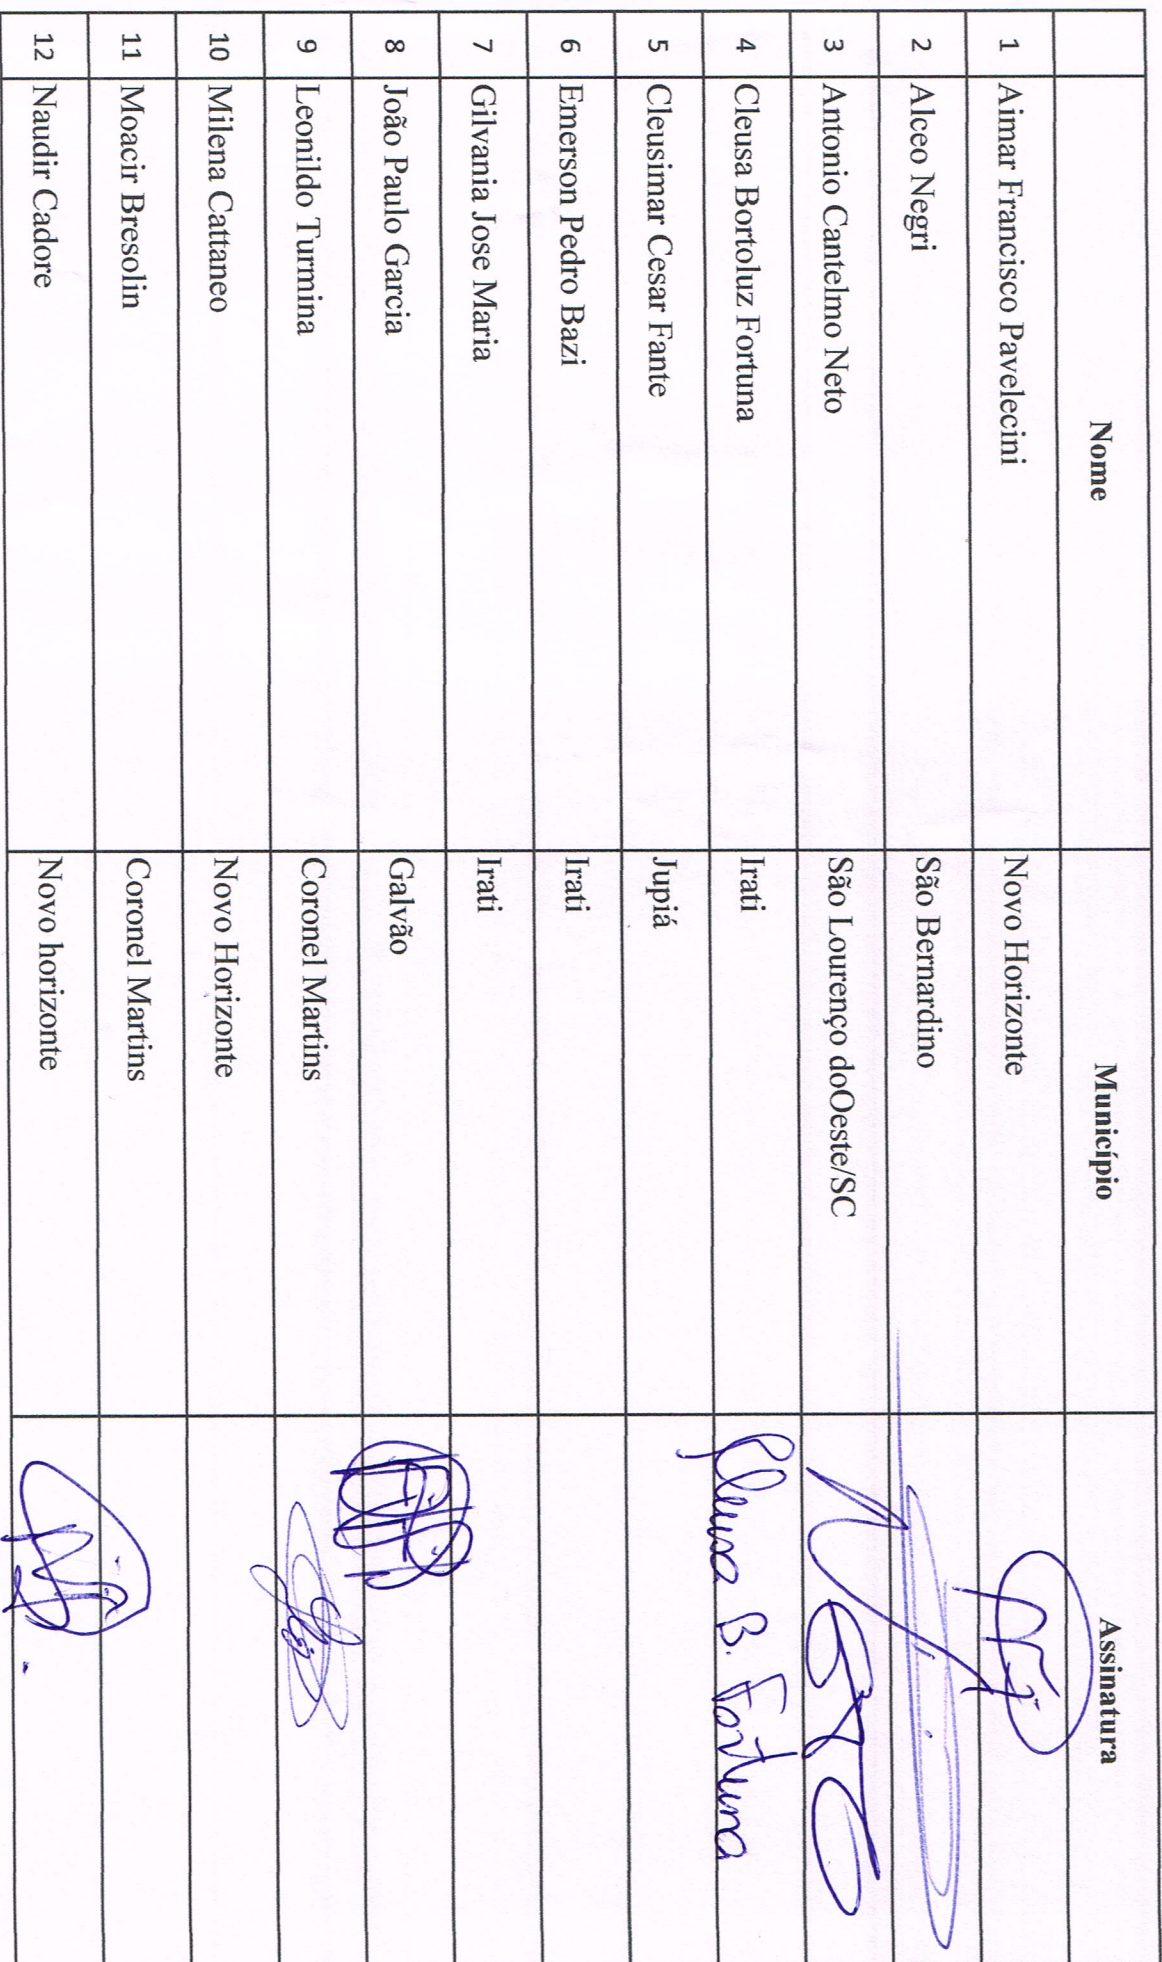 Nome Município Assinatura
1 Aimar Francisco Pavelecini Novo Horizonte
2 Alceo Negri São Bernardino
3 Antonio Cantelmo Neto São Lourenço doOeste/SC
4 Cleusa Bortoluz Fortuna Irati Cleusa B. Fortuna
5 Cleusimar Cesar Fante Jupiá
6 Emerson Pedro Bazi Irati
7 Gilvania Jose Maria Irati
8 João Paulo Garcia Galvão
9 Leonildo Turmina Coronel Martins
10 Milena Cattaneo Novo Horizonte
11 Moacir Bresolin Coronel Martins
12 Naudir Cadore Novo horizonte